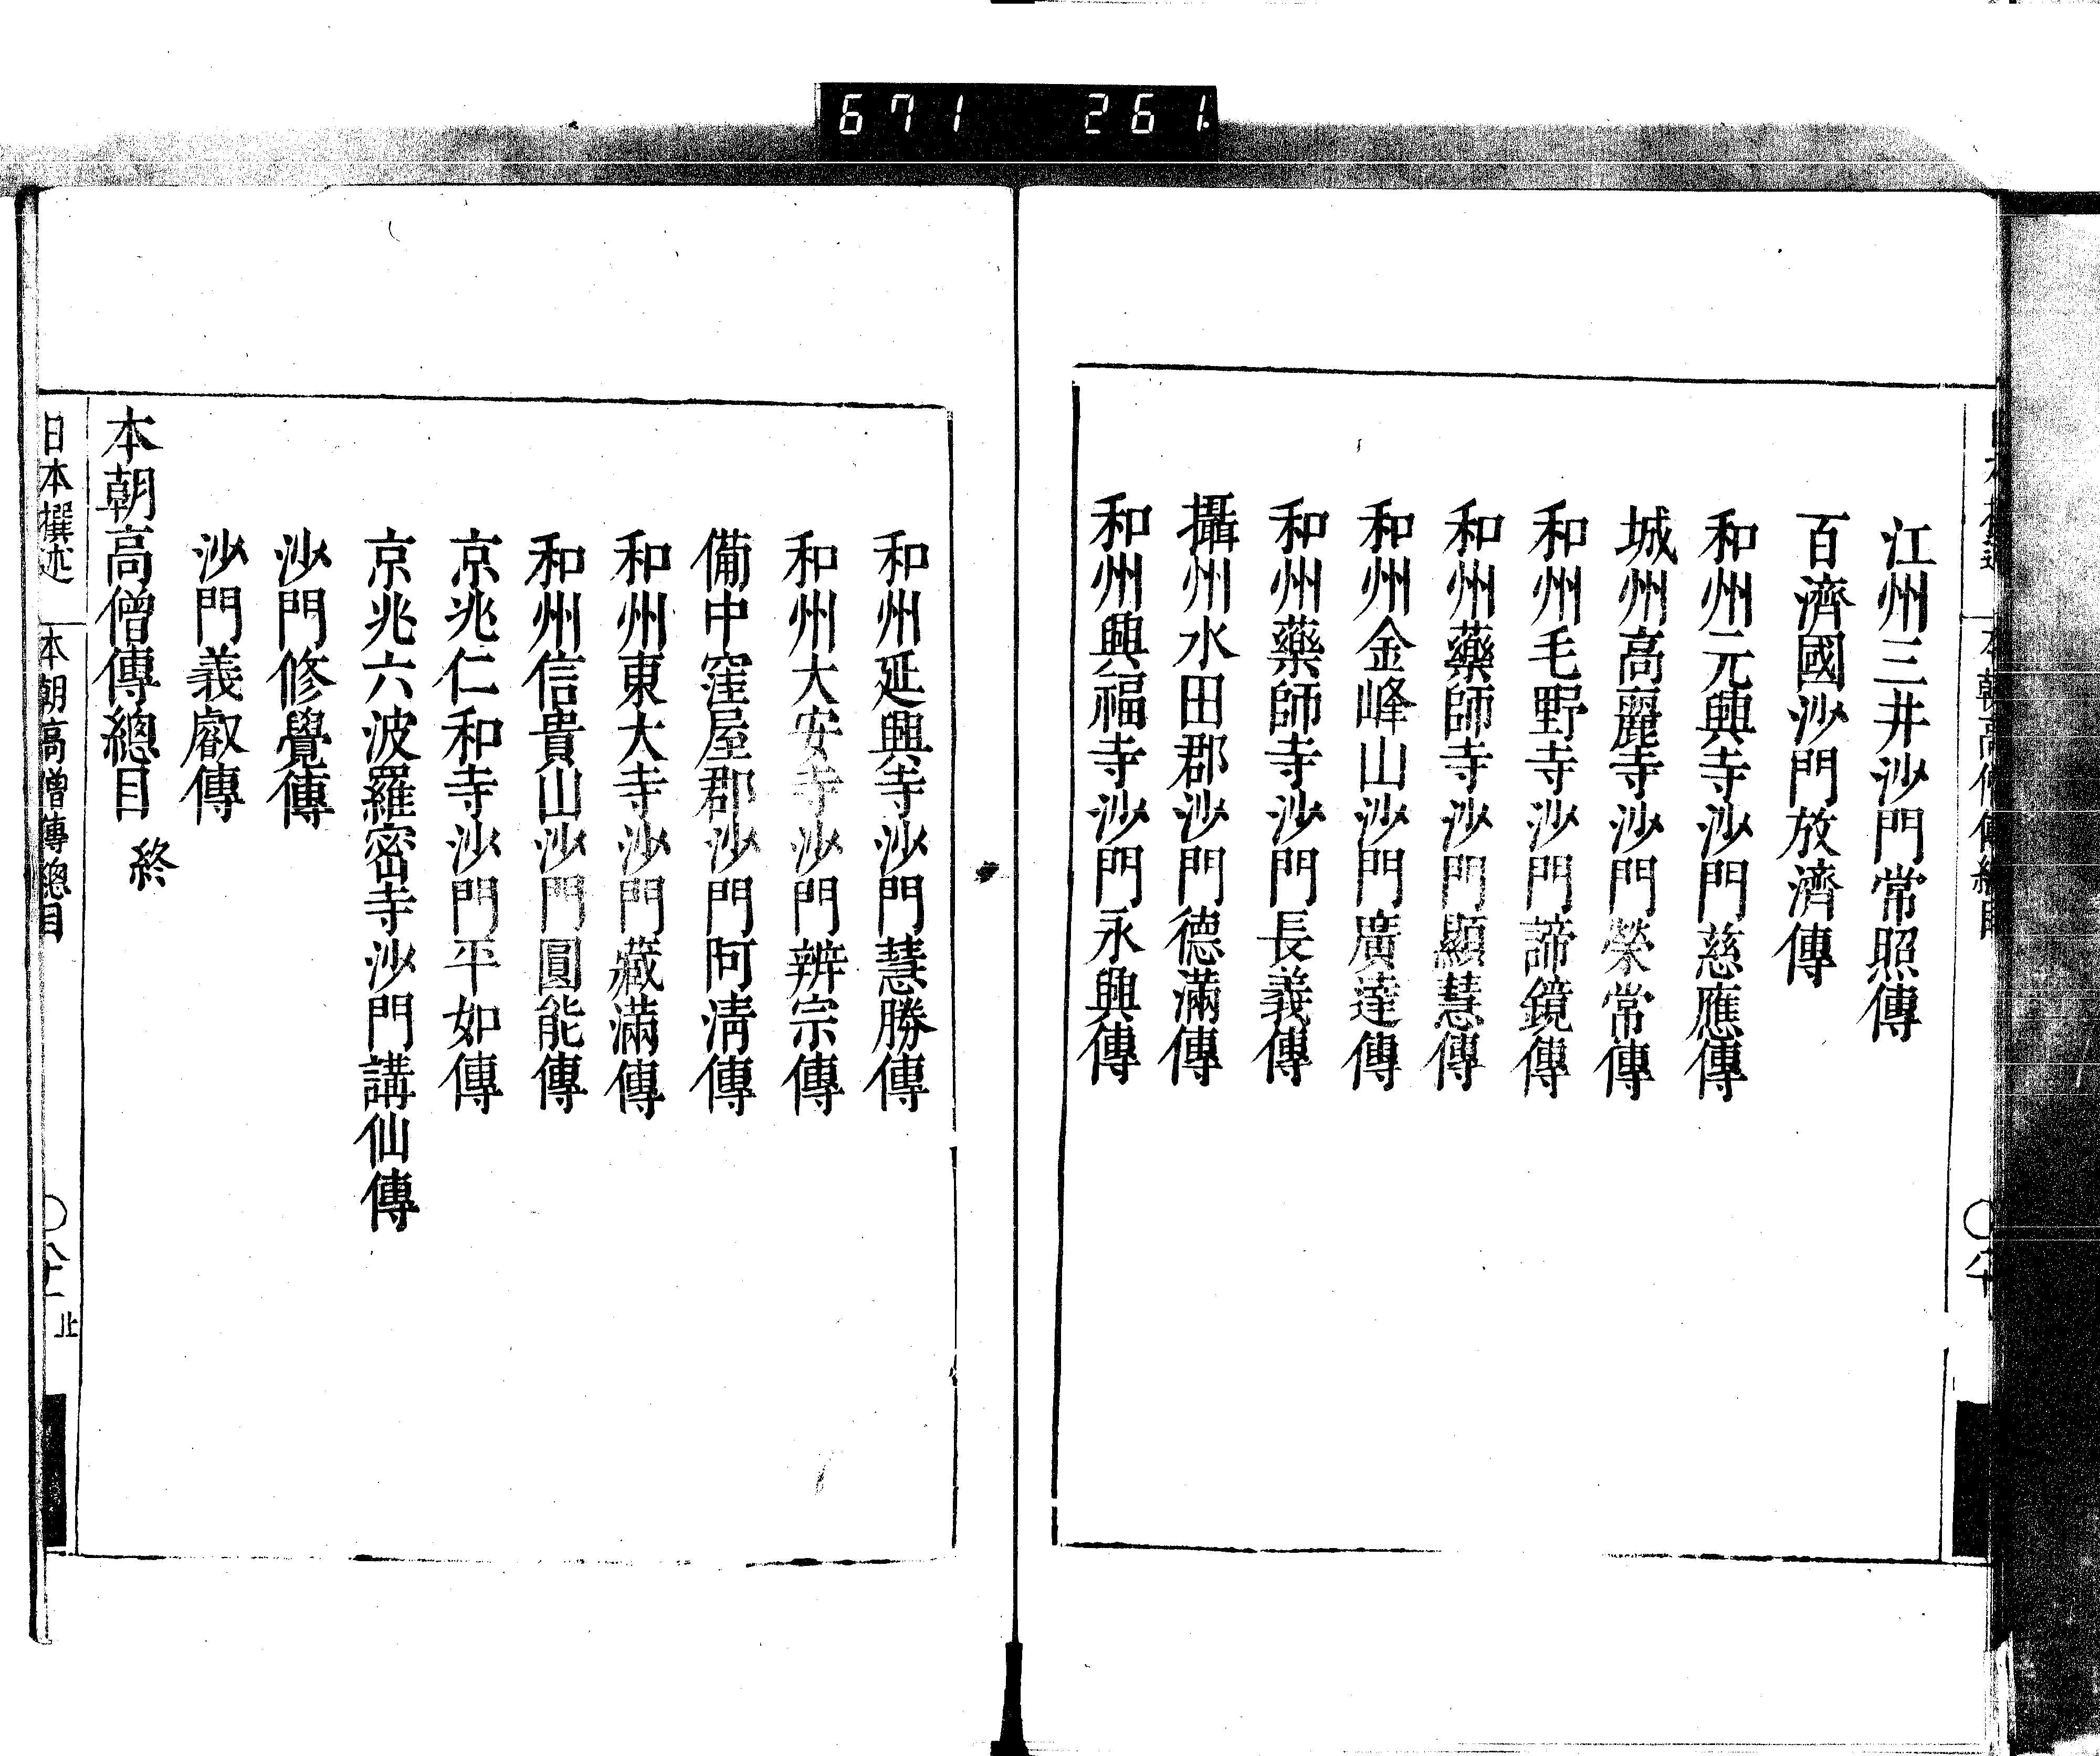 671 261
江州三井沙門常照傳
百濟國沙門放濟傳
和州元興寺沙門慈應傳
城州高麗寺沙門榮常傳
和州毛野寺沙門諦鏡傳
和州藥師寺沙門顯慧傳
和州金峰山沙門廣達傳
和州藥師寺沙門長義傳
攝州水田郡沙門德滿傳
和州興福寺沙門永興傳
和州延興寺沙門慧勝傳
和州大安寺沙門辨宗傳
備中窪屋郡沙門阿清傳
和州東大寺沙門藏滿傳
和州信貴山沙門圓能傳
京兆仁和寺沙門平如傳
京兆六波羅密寺沙門講仙傳
沙門修覺傳
沙門義叡傳
本朝高僧傳總目 終
日本撰述 本朝高僧傳總目